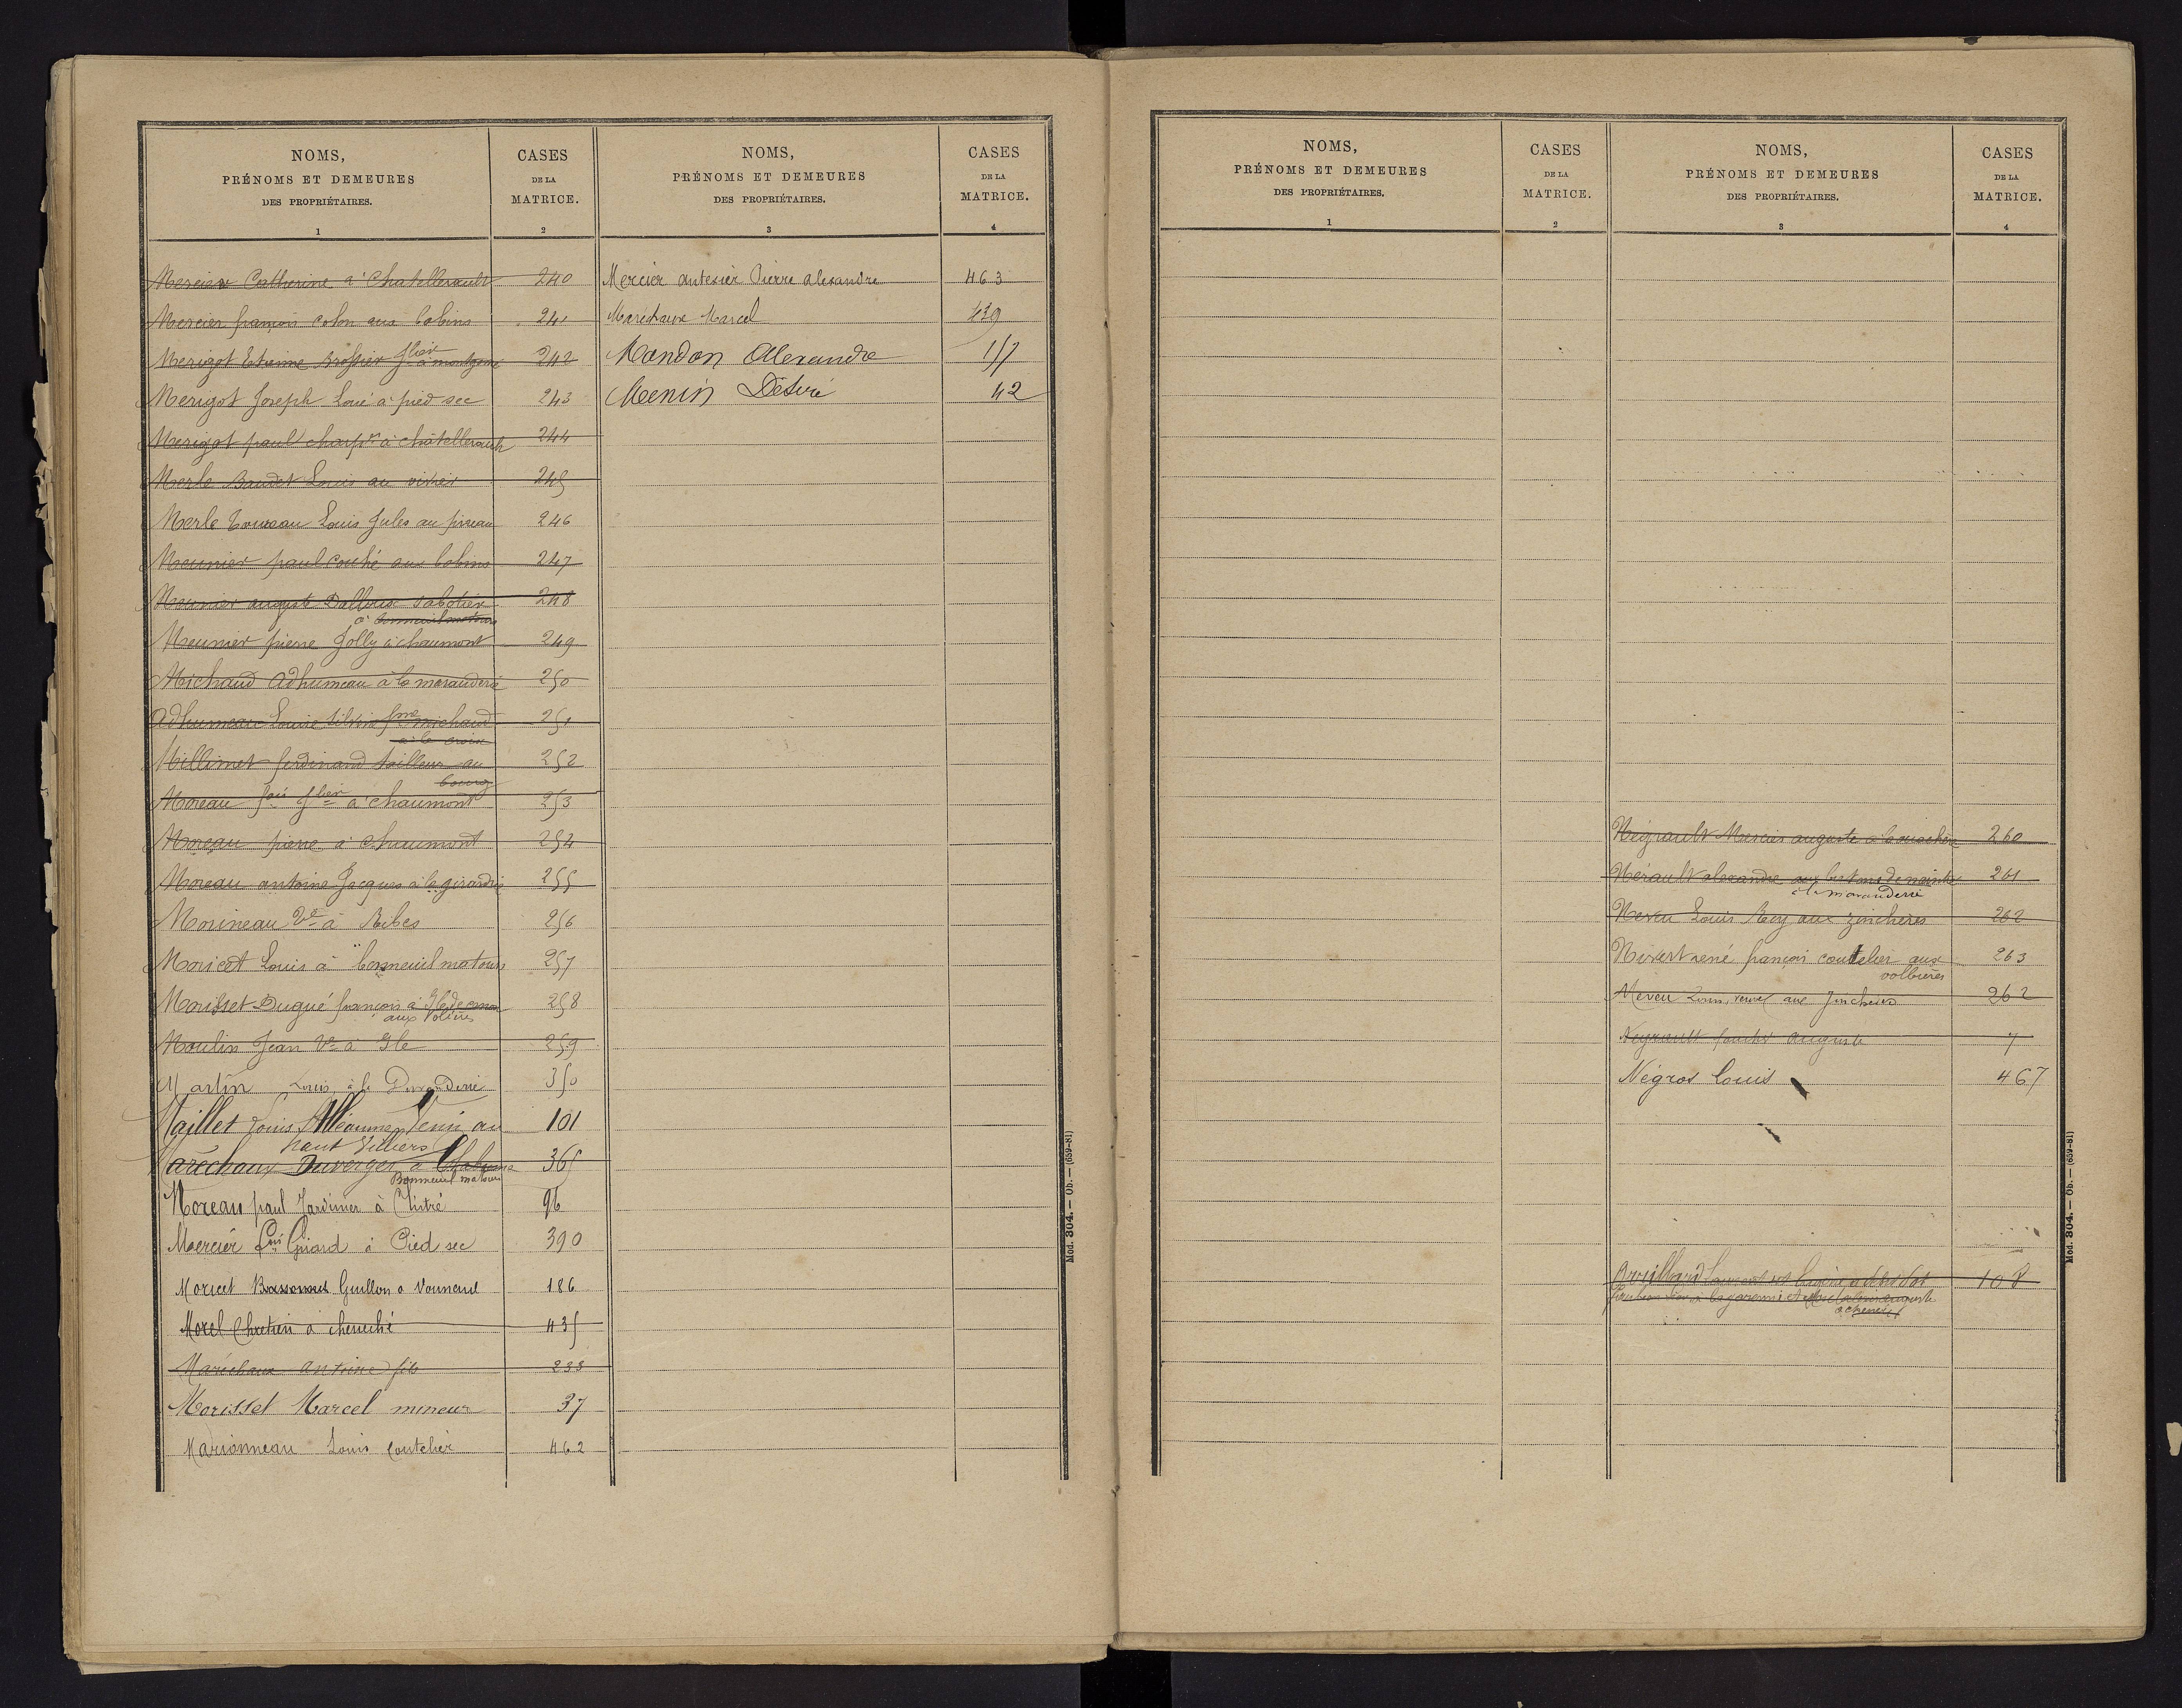 NOMS,
PRÉNOMS ET DEMEURES
DES PROPRIÉTAIRES.
1
CASES
DE LA
MATRICE.
2
Mercier Catherine à Chatellerault 240
Mercier françois colon aux bobins 241
Merigot Etienne Brossier Jlier à montgamé 242
Merigot Joseph Loué à pied sec 243
Merigot paul charpr à châtellerault 244
Merle Baudet Louis au vivier 245
Merle Louis Jules au 246
Meunier paul couhé aux bobins 247
Meunier auguste Dalloux sabotier 248
à bonneuil matours
Meunier pierre Jolly à chaumont 249
Michaud Adhumeau à la marauderie 250
Adhumeau Louise silvin fme michaud 251
à la croix
Millimet ferdinand tailleur au 252
bourg
Moreau fois Jlier à chaumont 253
Moreau pierre à chaumont 254
Moreau antoine Jacques à la girardrie 255
Morineau Ve à Ribes 256
Moricet Louis à bonneuil matours 257
Morisset Dugué françois à 258
aux volières
Moulin Jean Ve à Ile 259
Martin Louis à la 350
Maillet Louis Alléaume Denis au 101
haut Villiers
Maréchaux Duverger à 365
Bonneuil matours
Moreau paul Jardinier à Clitré 96
Mercier Fois Guiard à Pied sec 390
Moricet Guillon a Vouneuil 186
Morel Chretien à cheneché 435
Maréchaux antoine fils 233
Morisset Marcel mineur 37
Marionneau Louis Coutelier 462
NOMS,
PRÉNOMS ET DEMEURES
DES PROPRIÉTAIRES.
3
CASES
DE LA
MATRICE.
4
Mercier Pierre alexandre 463
Maréchaux Marcel 439
Mandon Alexandre 157
Menin Désiré 42
Mod. 304. — Ob. — (659-81)
NOMS,
PRÉNOMS ET DEMEURES
DES PROPRIÉTAIRES.
1
CASES
DE LA
MATRICE.
2
NOMS,
PRÉNOMS ET DEMEURES
DES PROPRIÉTAIRES.
3
CASES
DE LA
MATRICE.
4
Négrault Mercier auguste à 260
Nérault alexandre aux 261
à la marauderie
Neveu Louis Roy aux 262
Nivert rené françois coutelier aux 263
volbières
Neveu Louis, aux 262
Neyrault auguste 7
Négros Louis 467
Brouillard 108
Mod. 304. — Ob. — (659-81)